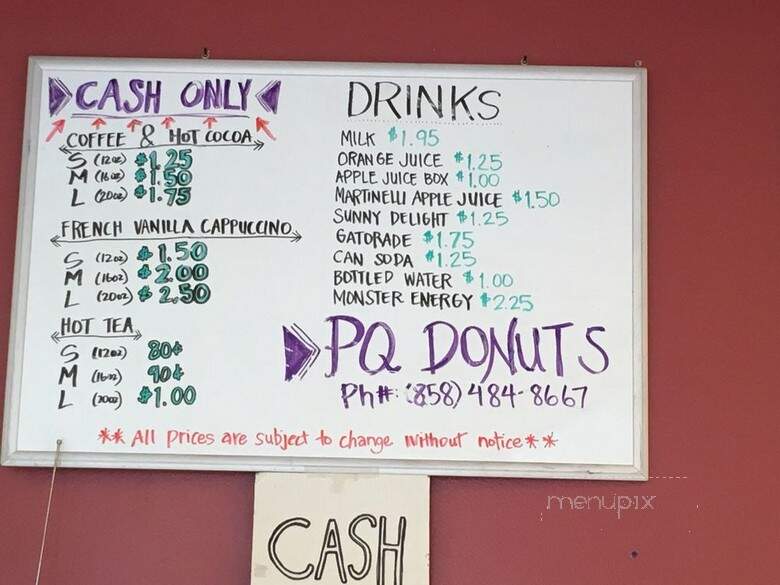 CASH ONLY
COFFEE & HOT COCOA
S (12oz) $1.25
M (16oz) $1.50
L (20oz) $1.75
FRENCH VANILLA CAPPUCCINO
S (12oz) $1.50
M (16oz) $2.00
L (20oz) $2.50
HOT TEA
S (12oz) 80¢
M (16oz) 90¢
L (20oz) $1.00
DRINKS
MILK $1.95
ORANGE JUICE $1.25
APPLE JUICE BOX $1.00
MARTINELLI APPLE JUICE $1.50
SUNNY DELIGHT $1.25
GATORADE $1.75
CAN SODA $1.25
BOTTLED WATER $1.00
MONSTER ENERGY $2.25
PQ DONUTS
Ph#: (858) 484-8667
** All Prices are subject to change without notice **
CASH
menupix